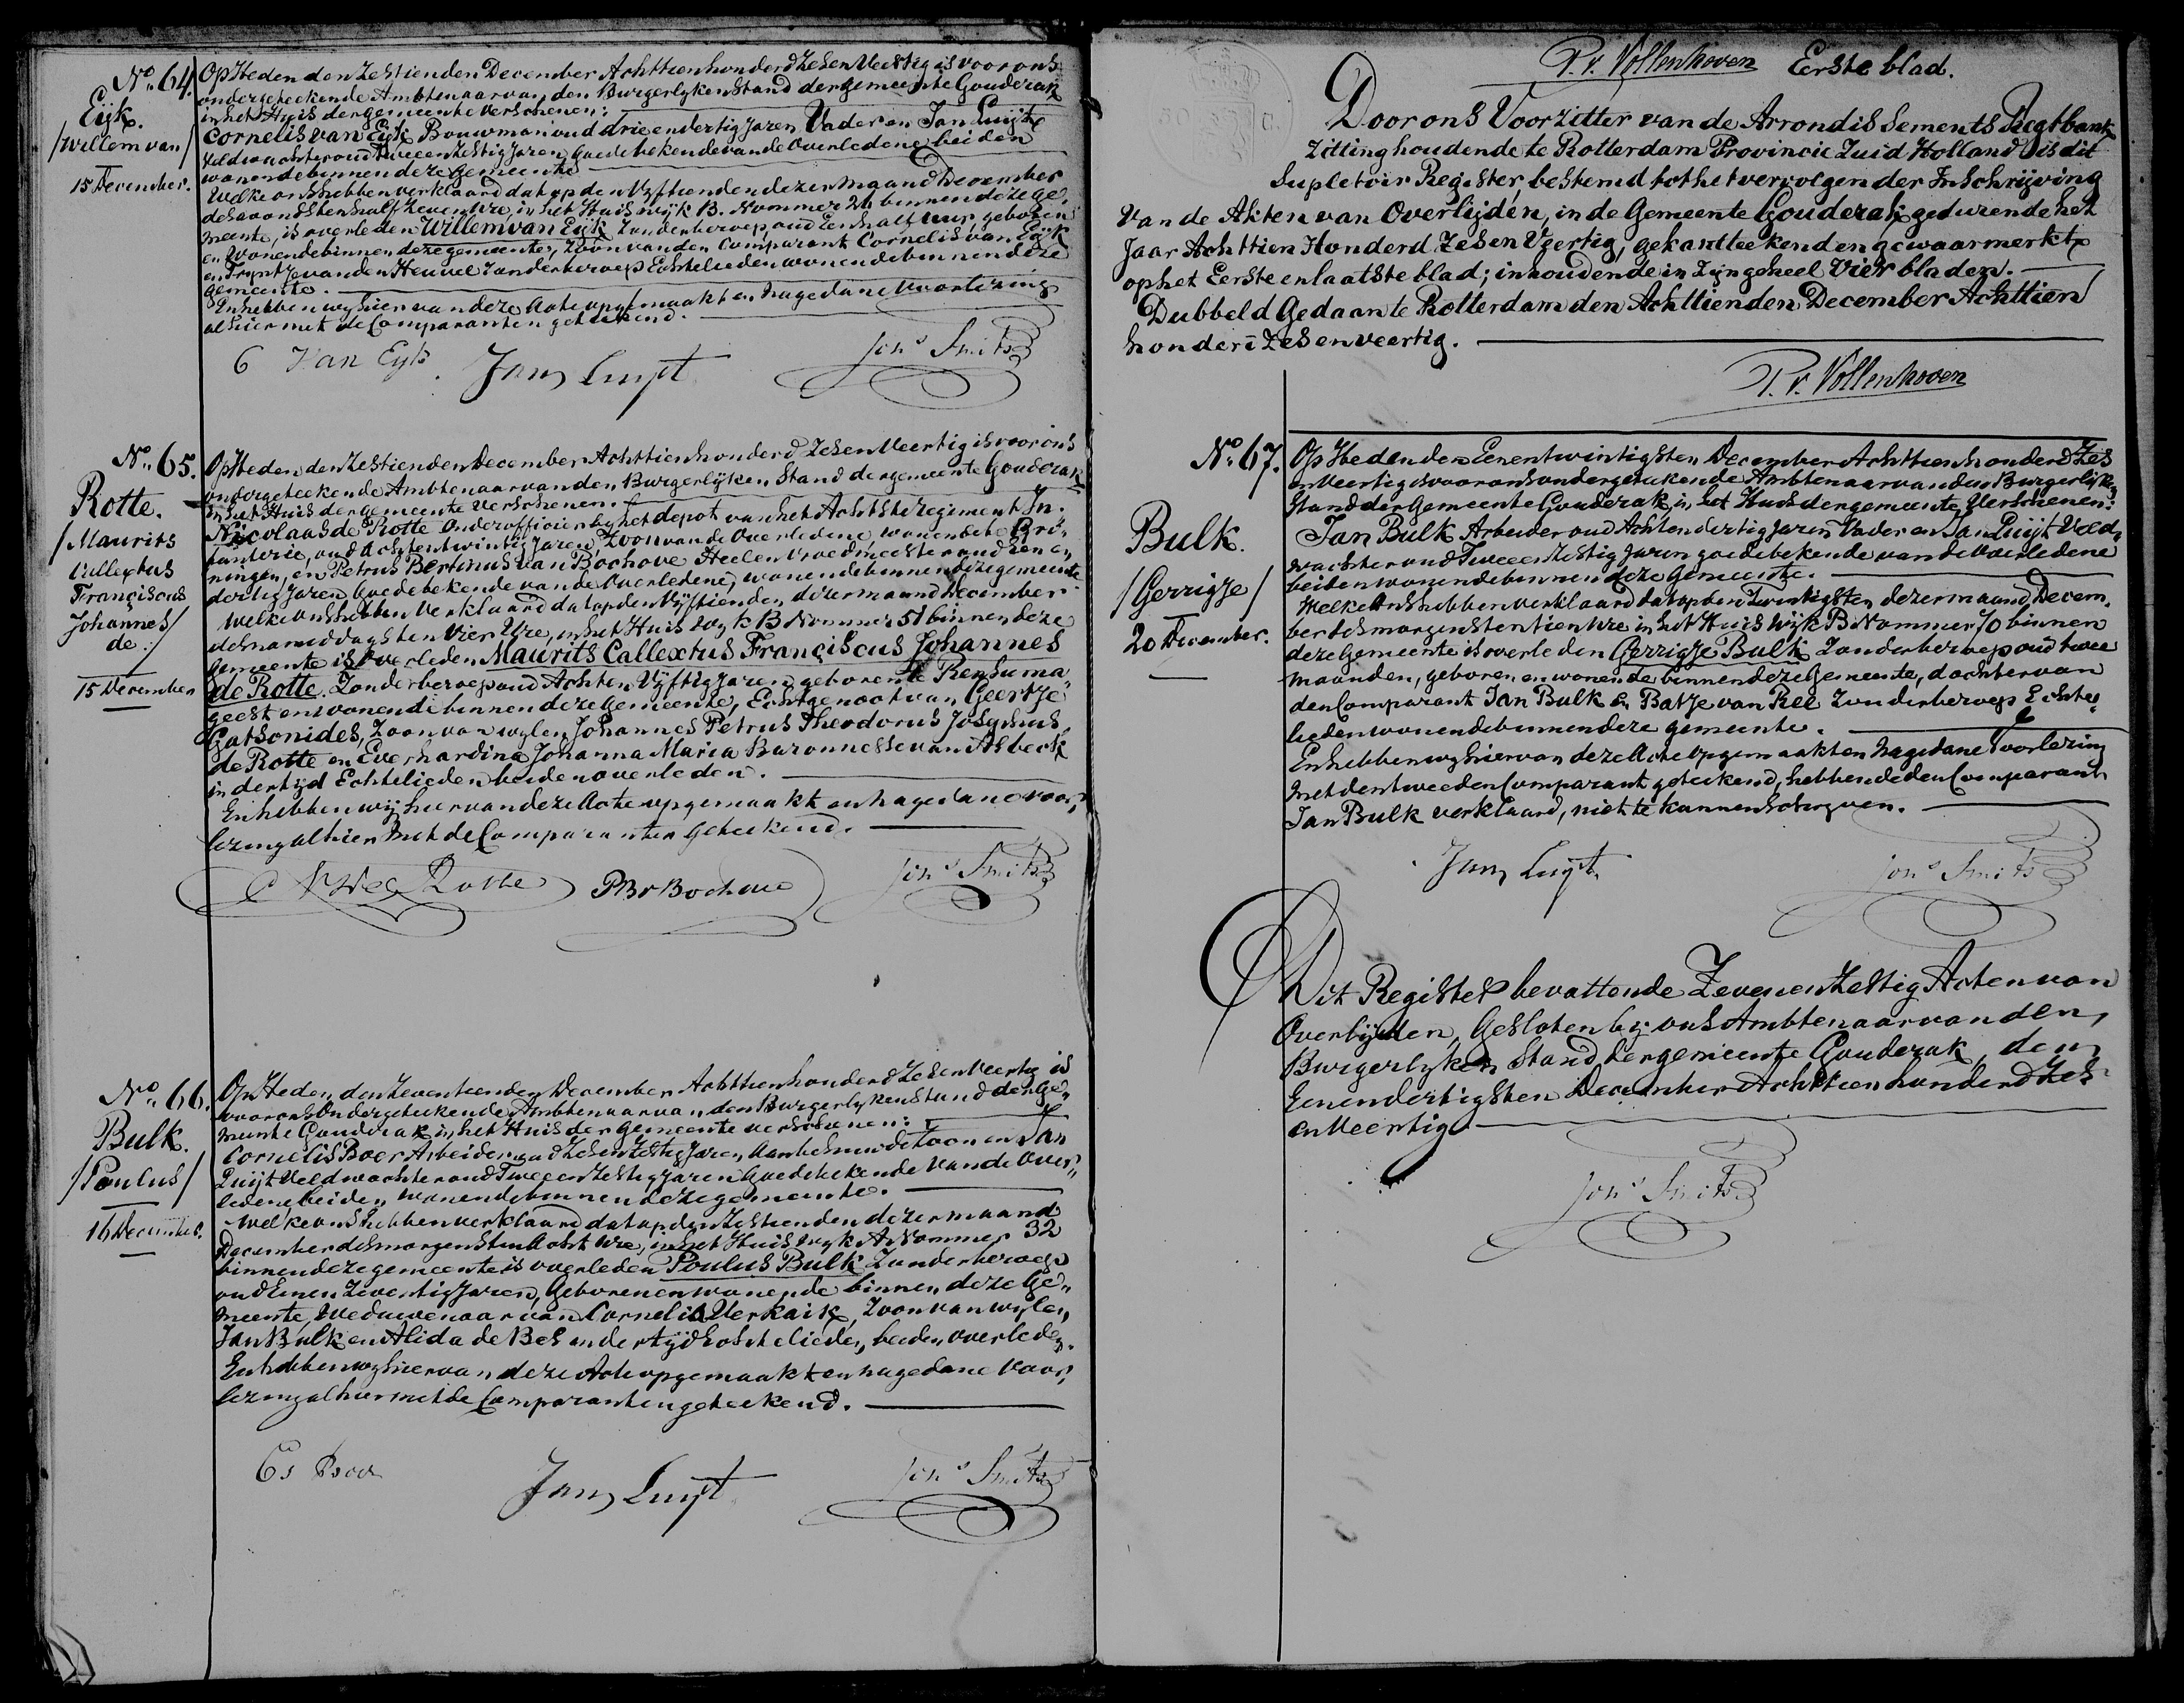 No. 64.
Eijk.
/Willem van/
15 December.
Op Heden den Zestienden December Achttienhonderd Zes en Veertig is voor ons
ondergeteekende Ambtenaar van den Burgerlyken Stand der gemeente Gouderak
in het Huis der gemeente verschenen:
Cornelis van Eijk Bouwman oud drie en dertig Jaren Vader en Jan Luijt
Veldwachter oud Twee en Zestig Jaren goede bekende van de Overledene beiden
wonende binnen deze gemeente
Welke ons hebben verklaard dat op den Vyftienden dezer maand December
des avonds ten half zeven Ure, in het Huis wijk B. Nommer 24 binnen deze ge„
meente, is overleden Willem van Eijk Zonder beroep, oud Een half uur, geboren
en Wonende binnen deze gemeente, Zoon van den Comparant Cornelis van Eijk
en Tryntje van den Heuvel Zonder beroep Echtelieden wonende binnen deze
gemeente.
En hebben wy hiervan deze Acte opgemaakt en na gedane Voorlezing
alhier met de Comparanten geteekend.
C Van Eyk Jan Luijt Jons Smits
No. 65.
Rotte.
/Maurits
Callextus
Franciscus
Johannes/
de./
15 December
Op Heden den Zestienden December Achttienhonderd Zes en Veertig is voor ons
ondergeteekende Ambtenaar van den Burgerlyken Stand der gemeente Gouderak
in het Huis der Gemeente verschenen.
Nicolaas de Rotte Onderofficier by het depot van het Achtste regement In„
fanterie, oud Acht en twintig Jaren, Zoon van de Overledene, wonende te Gro„
ningen, en Petrus Bertinus van Bochove Heel en Vroedmeester oud een en
dertig Jaren Goede bekende van de Overledene, wonende binnen deze gemeente
Welke ons hebben Verklaard dat op den Vyftienden dezer maand December
des namiddags ten Vier Ure, in het Huis Wyk B Nommer 51 binnen deze
Gemeente is Overleden Maurits Callextus Franciscus Johannes
de Rotte, Zonder beroep oud Acht en Vyftig Jaren, geboren te Rensuma„
geest en wonende binnen deze gemeente, Echtgenoot van Geertje
Gatsonides, Zoon van wylen Johannes Petrus Theodorus Josephus
de Rotte en Everhardina Johanna Maria Baronnesse van Asbeck
in dertijd Echtelieden beiden overleden.
En hebben wij hiervan deze Acte opgemaakt en na gedane voor„
lezing alhier met de Comparanten Geteekend.
N de Rotte PB v Bochove Jons Smits
No. 66.
Bulk.
/Poulus/
16 December.
Op Heden den Zeventienden December Achttienhonderd Zes en Veertig is
voor ons Ondergeteekende Ambtenaar van den Burgerlyken Stand der Ge„
meente Gouderak in het Huis der gemeente verschenen:
Cornelis Boer Arbeider oud Zes en Zestig Jaren, Aanbehuwde Zoon en Jan
Luijt Veldwachter oud Twee en Zestig Jaren Goede bekende van de Over„
ledene, beiden wonende binnen deze gemeente.
Welke ons hebben verklaard dat op den Zestienden dezer maand
December des morgens ten Acht Ure, in het Huis wyk A Nommer 32
binnen deze gemeente is overleden Poulus Bulk Zonder beroep
oud Een en Zeventig Jaren, Geboren en wonende binnen deze Ge„
meente, Weduwenaar van Cornelia Verkaik, Zoon van wylen
Jan Bulk en Alida de Bes in der tijd Echtelieden, beiden overleden.
En hebben wy hiervan deze Acte opgemaakt en na gedane Voor„
lezing alhier met de Comparanten geteekend.
Cs Boer Jan Luijt Jons Smits
P. v. Vollenhoven Eerste blad.
Door ons Voorzitter van de Arrondissements Regtbank
Zitting houdende te Rotterdam Provincie Zuid Holland is dit
Supletoir Register, bestemd tot het vervolgen der Inschrijving
Van de Akten van Overlijden, in de Gemeente Gouderak, gedurende het
Jaar Achttien Honderd Zes en Veertig, gekantteekend en gewaarmerkt
op het Eerste en laatste blad; inhoudende in Zijn geheel Vier bladen.
Dubbeld Gedaan te Rotterdam den Achttienden December Achttien
honderd Zes en veertig.
P. v. Vollenhoven
No. 67.
Bulk.
/Gerrigje/
20 December.
Op Heden den Een en twintigsten December Achttienhonderd Zes
en Veertig is voor ons ondergeteekende Ambtenaar van den Burgerlijken
Stand der Gemeente Gouderak in het Huis der gemeente Verschenen:
Jan Bulk Arbeider oud Acht en dertig Jaren Vader en Jan Luijt Veld„
wachter oud Twee en Zestig Jaren goede bekende van de Overledene
beiden wonende binnen deze Gemeente.
Welke Ons hebben verklaard dat op den Twintigsten dezer maand Decem„
ber des morgens ten tien Ure in het Huis Wijk B Nommer 70 binnen
deze Gemeente is overleden Gerrigje Bulk Zonder beroep oud twee
maanden, geboren en wonende binnen deze Gemeente, dochter van
den Comparant Jan Bulk en Batje van Ree Zonder beroep Echte„
lieden wonende binnen deze gemeente.
En hebben wy hiervan deze Acte Opgemaakt en na gedane voorlezing
met den tweeden Comparant geteekend, hebbende den Comparant
Jan Bulk verklaard, niet te kunnen schryven.
Jan Luijt Jons Smits
Dit Register bevattende Zeven en Zestig Acten van
Overlijden, Gesloten by ons Ambtenaar van den
Burgerlyken Stand der gemeente Gouderak, den
Een en dertigsten December Achttienhonderd Zes
en Veertig
Jons Smits